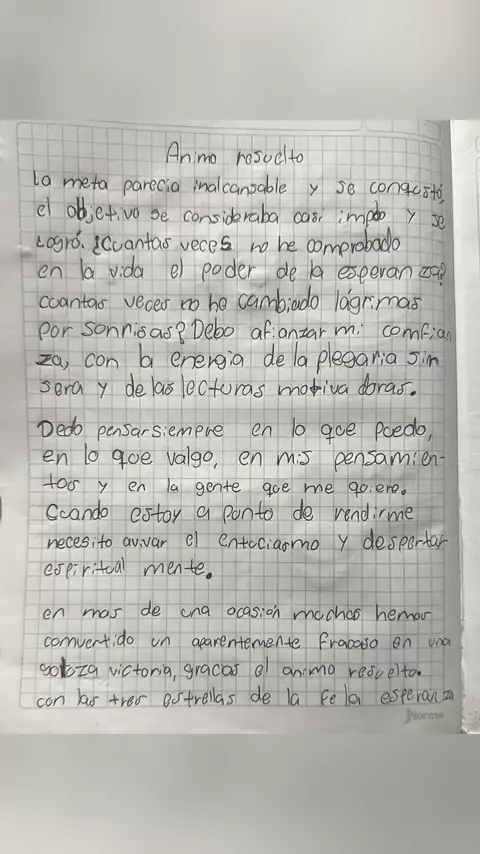 Animo resuelto
La meta parecia inalcansable y se conqusto,
el objetivo se consideraba casi impo y se
Logró. ¿Cuantas veces no he comprobado
en la vida el poder de la esperanza?
cuantas veces no he cambiado lágrimas
por sonrisas? Debo afianzar mi comfian
za, con la energia de la plegaria sin
sera y de las lecturas motiva doras.
Dedo pensar siempre en lo que puedo,
en lo que valgo, en mis pensamien-
tos y en la gente que me quiere.
Cuando estoy a punto de rendirme
necesito avivar el entuciasmo y despertar
espiritual mente.
en mas de una ocasión muchos hemos
comvertido un aparentemente fracaso en una
victoria, gracas el animo resuelto.
con las tres estrellas de la fe la esperanza
Norma